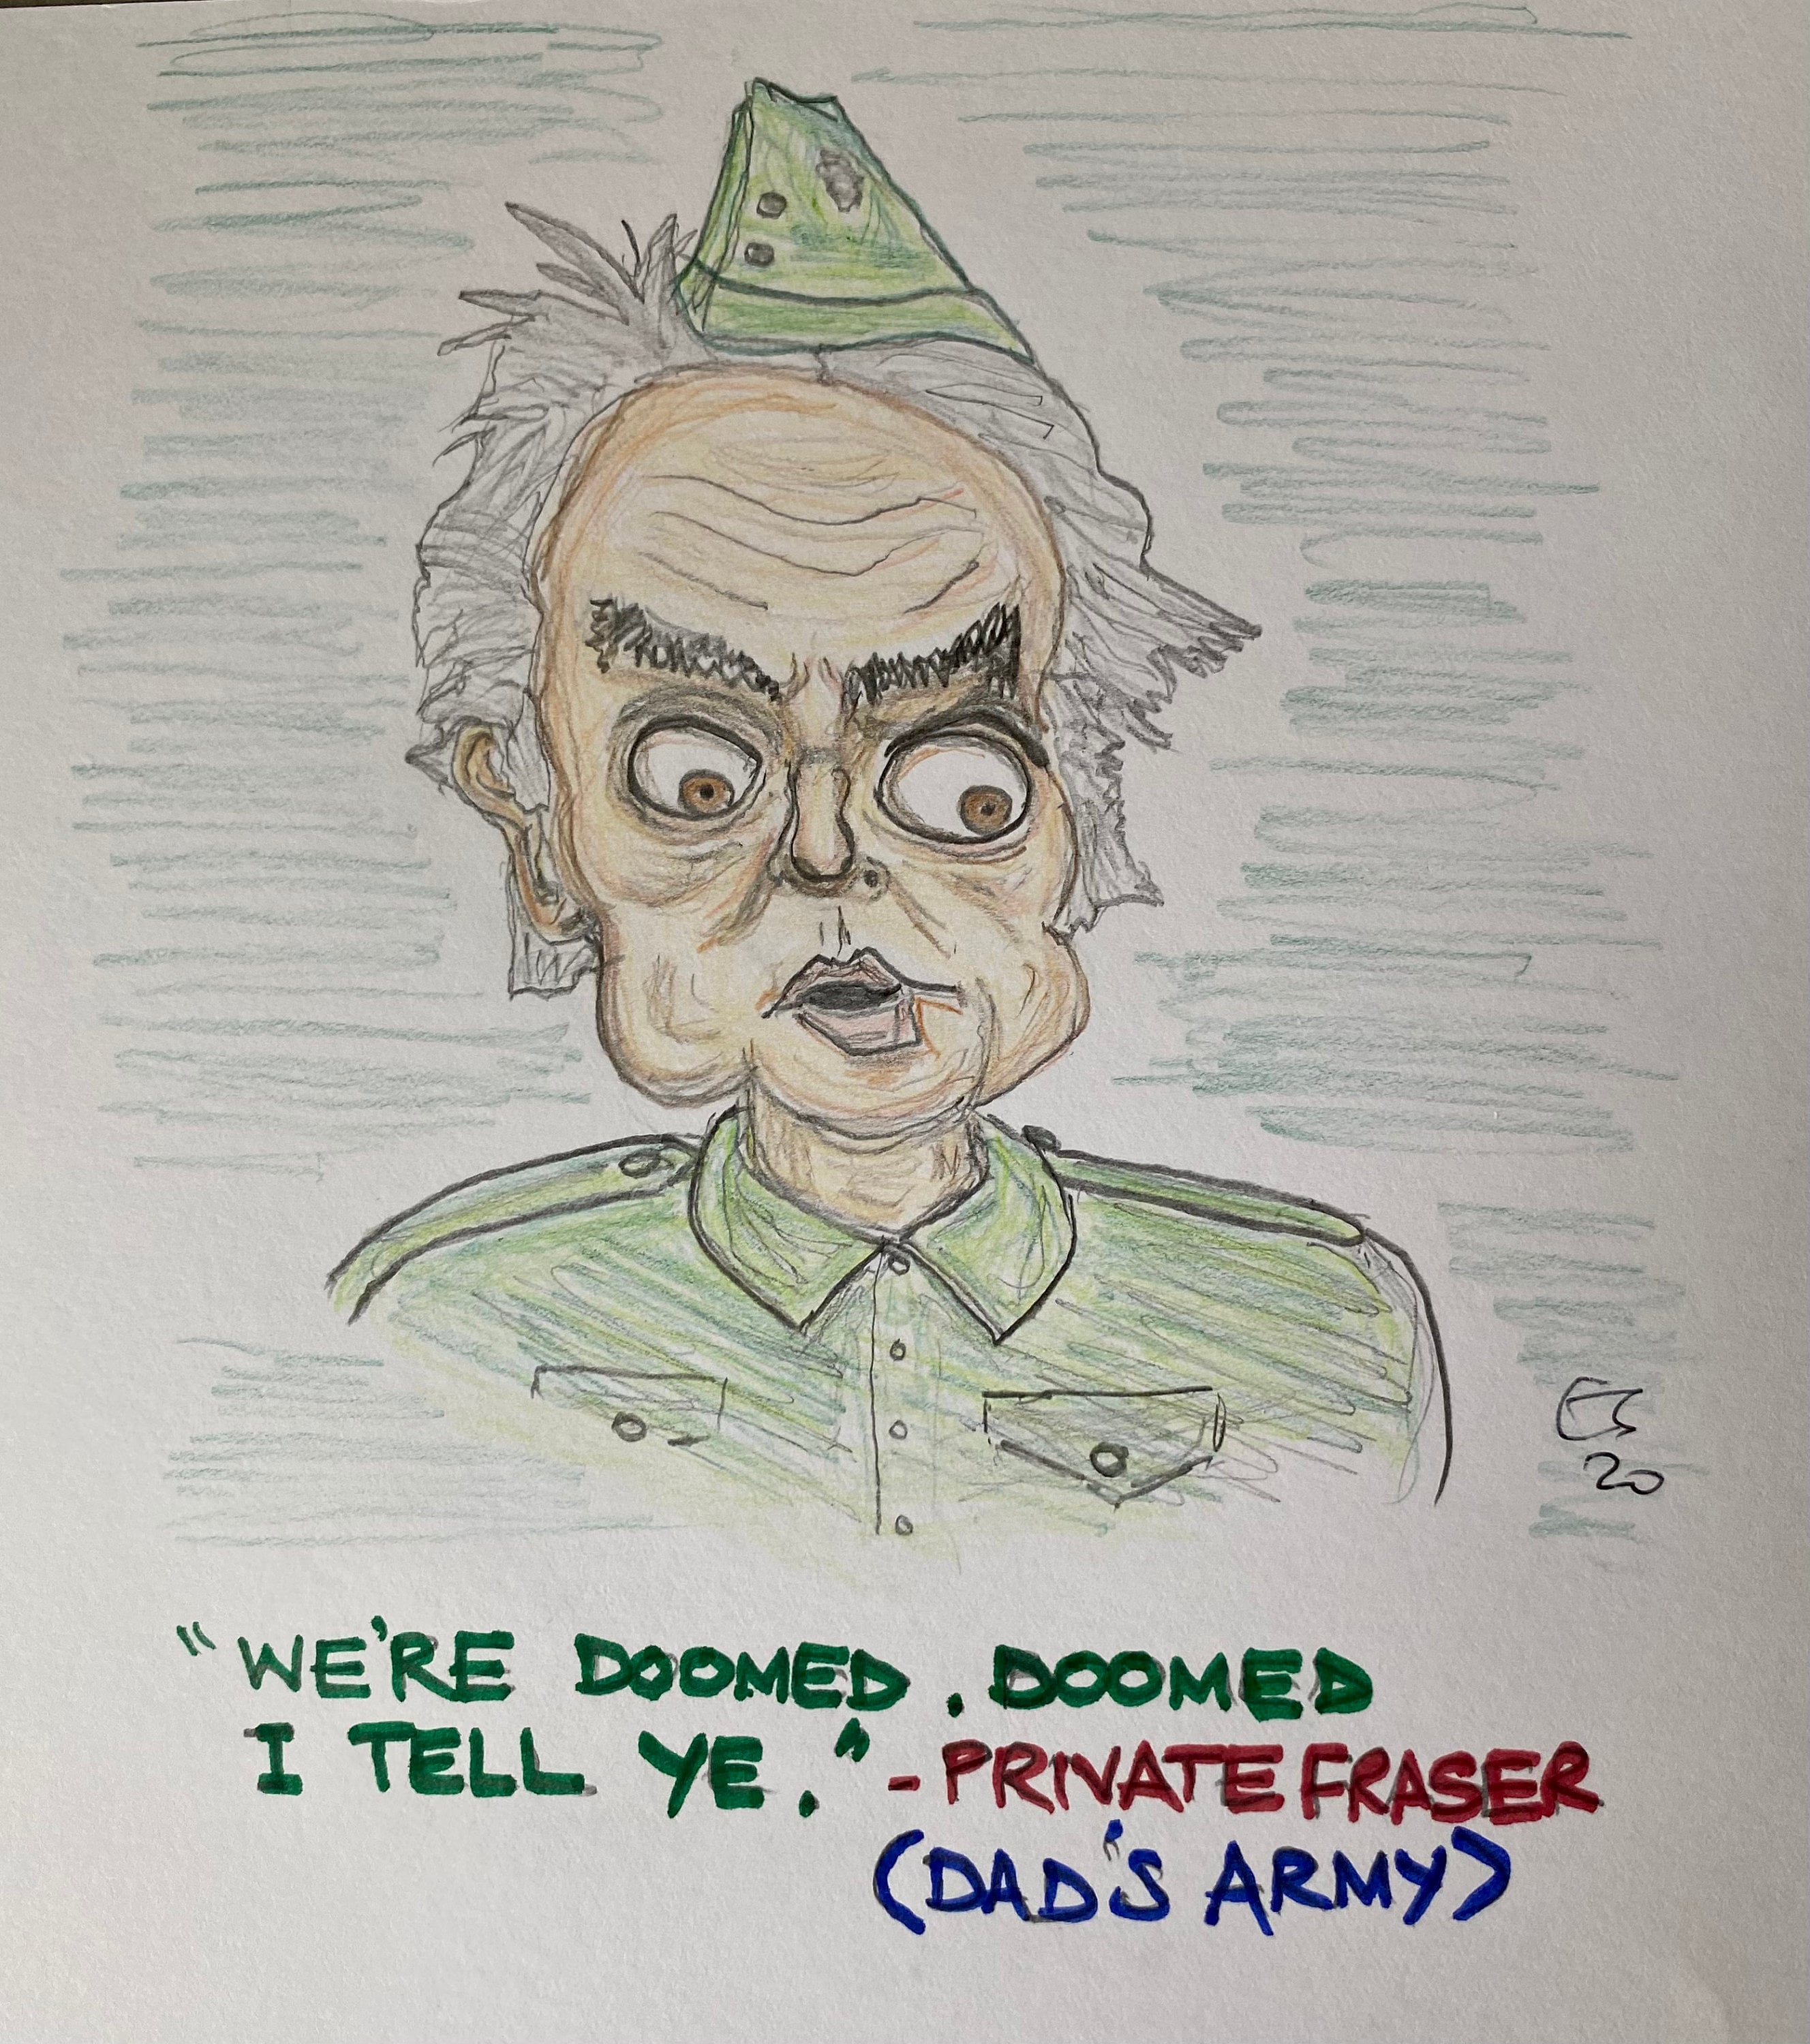 20
"WE'RE DOOMED. DOOMED
I TELL YE." - PRIVATE FRASER
(DAD'S ARMY)